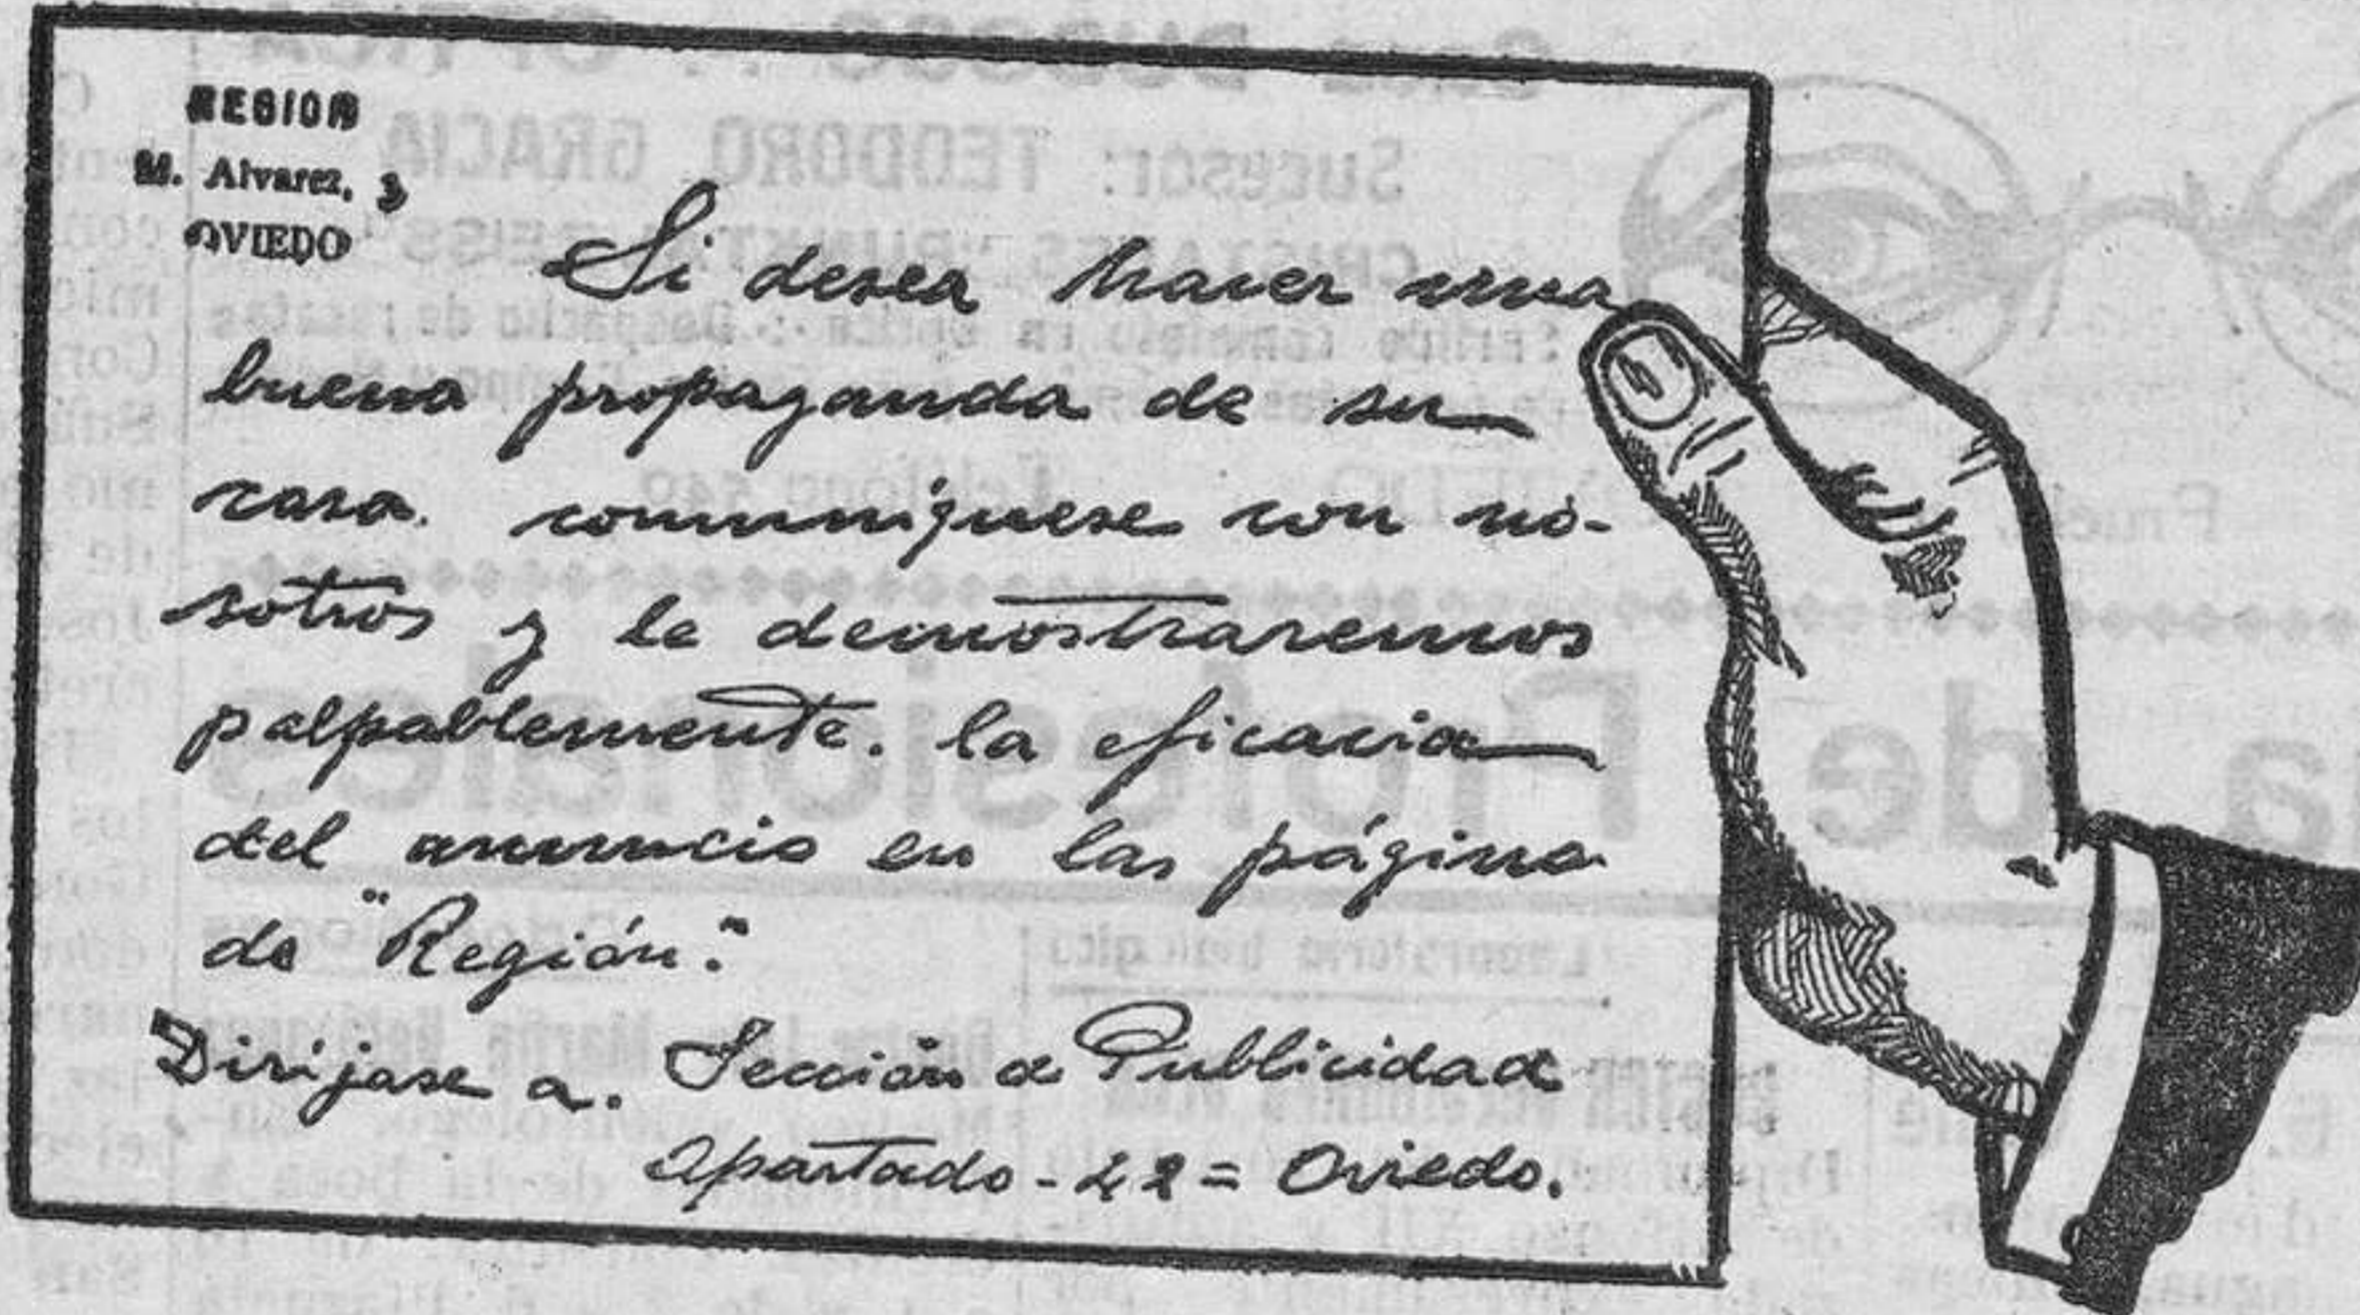 REGION
M. Alvarez, 3
OVIEDO
Si desea hacer una
buena propaganda de su
casa. comuníquese con no-
sotros y le demostraremos
palpablemente. la eficacia
del anuncio en las página
de "Región".
Diríjase a. Sección de Publicidad
Apartado - 42 = Oviedo.